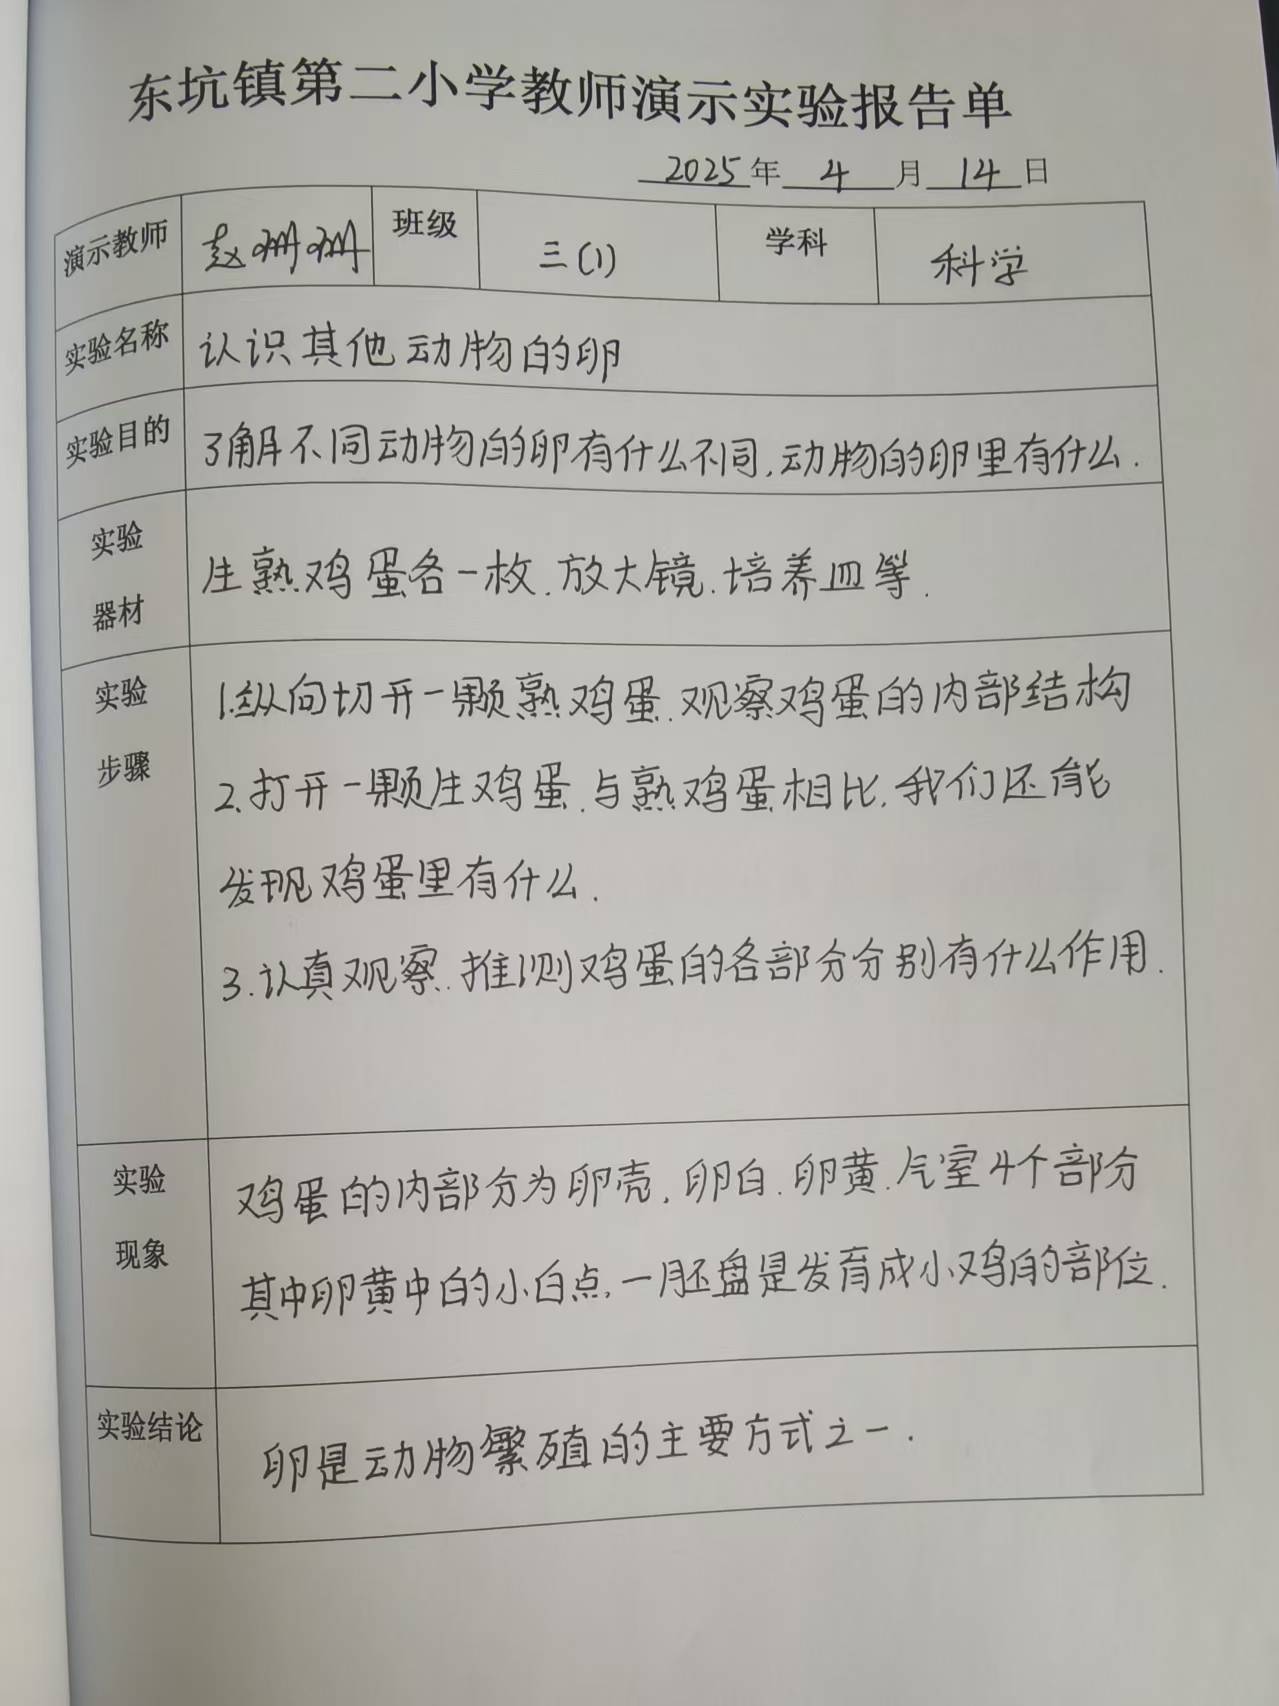 东坑镇第二小学教师演示实验报告单
2025年 4 月 14 日
演示教师 赵姗姗 班级 三(1) 学科 科学
实验名称 认识其他动物的卵
实验目的 了解不同动物的卵有什么不同,动物的卵里有什么.
实验
器材
生熟鸡蛋各一枚.放大镜.培养皿等.
实验
步骤
1.纵向切开一颗熟鸡蛋.观察鸡蛋的内部结构
2.打开一颗生鸡蛋.与熟鸡蛋相比.我们还能
发现鸡蛋里有什么.
3.认真观察.推测鸡蛋的各部分分别有什么作用.
实验
现象
鸡蛋的内部分为卵壳.卵白.卵黄.气室4个部分
其中卵黄中白的小白点.一胚盘是发育成小鸡的部位.
实验结论 卵是动物繁殖的主要方式之一.